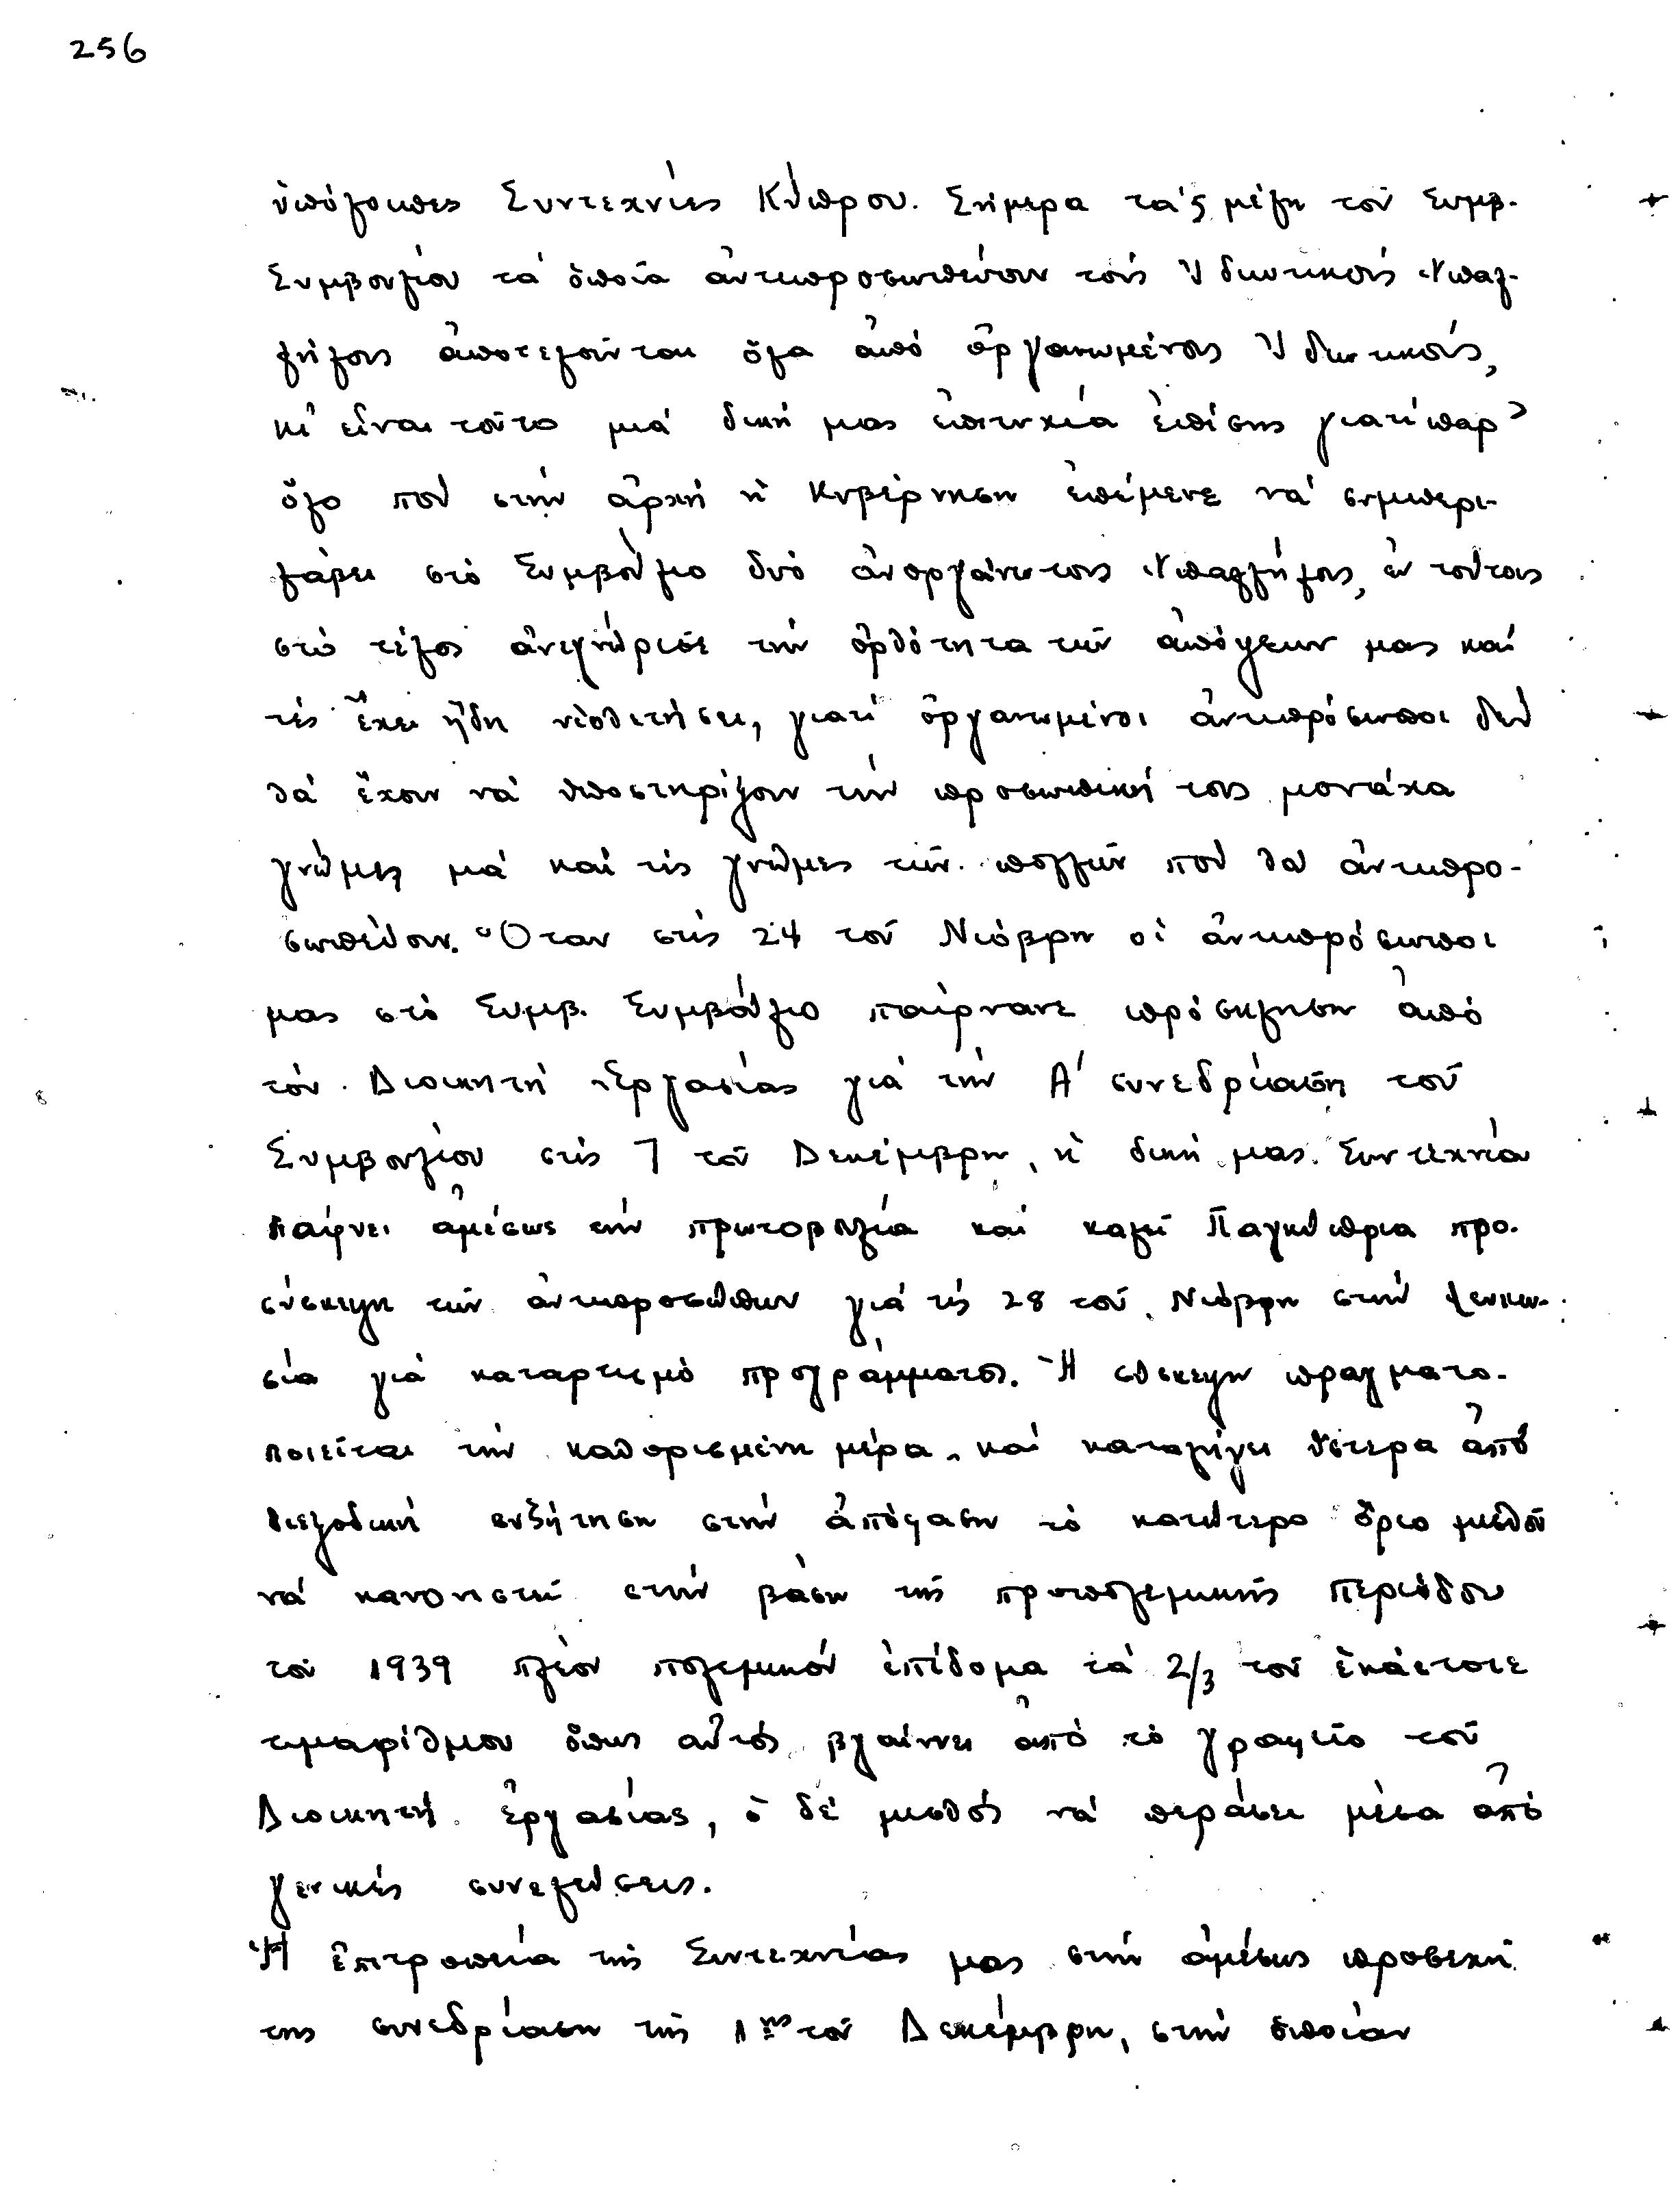 256
ὑπόλοιπες Συντεχνίες Κύπρου. Σήμερα τά 5 μέλη τοῦ Συμβ.
Συμβουλίου τά ὁποῖα ἀντιπροσωπεύουν τούς Ἰδιωτικούς Ὑπαλ-
λήλους ἀποτελοῦνται ὅλα ἀπό ὀργανωμένους Ἰδιωτικούς,
κι' εἶναι τοῦτο μιά δική μας ἐπιτυχία ἐπίσης γιατί παρ'
ὅλο πού στήν ἀρχή ἡ Κυβέρνηση ἐπέμενε νά συμπερι-
λάβει στό Συμβούλιο δυό ἀνοργάνωτους Ὑπαλλήλους, ἐν τούτοις
στό τέλος ἀνεγνώρισε τήν ὀρθότητα τῶν ἀπόψεων μας καί
τές ἔχει ἤδη υἱοθετήσει, γιατί ὀργανωμένοι ἀντιπρόσωποι δέν
θά ἔχουν νά ὑποστηρίξουν τήν προσωπική τους μονάχα
γνώμη μά καί τίς γνῶμες τῶν πολλῶν πού θά ἀντιπρο-
σωπεύουν. Ὅταν στίς 24 τοῦ Νιόβρη οἱ ἀντιπρόσωποι
μας στό Συμβ. Συμβούλιο παίρνανε πρόσκληση ἀπό
τόν Διοικητή Ἐργασίας γιά τήν Α' συνεδρίαση τοῦ
Συμβουλίου στίς 7 τοῦ Δεκέμβρη, ἡ δική μας Συντεχνία
παίρνει ἀμέσως τήν πρωτοβουλία καί καλεῖ Παγκύπρια προ-
σύσκεψη τῶν ἀντιπροσώπων γιά τίς 28 τοῦ Νιόβρη στήν Λευκω-
σία γιά καταρτισμό προγράμματος. Ἡ σύσκεψη πραγματο-
ποιεῖται τήν καθορισμένη μέρα, καί καταλήγει ὕστερα ἀπό
διεξοδική συζήτηση στήν ἀπόφαση τό κατώτερο ὅριο μισθοῦ
νά κανονιστεῖ στήν βάση τῆς προπολεμικῆς περιόδου
τοῦ 1939 πλέον πολεμικόν ἐπίδομα τά 2/3 τοῦ ἑκάστοτε
τιμαρίθμου ὅπως αὐτός βγαίννει ἀπό τό γραφεῖο τοῦ
Διοικητή ἐργασίας, ὁ δέ μισθός νά περάσει μέσα ἀπό
γενικές συνελεύσεις.
Ἡ ἐπιτροπεία τῆς Συντεχνίας μας στήν ἀμέσως προσεχῆ
της συνεδρίαση τῆς 1ης τοῦ Δεκέμβρη, στήν ὁποίαν